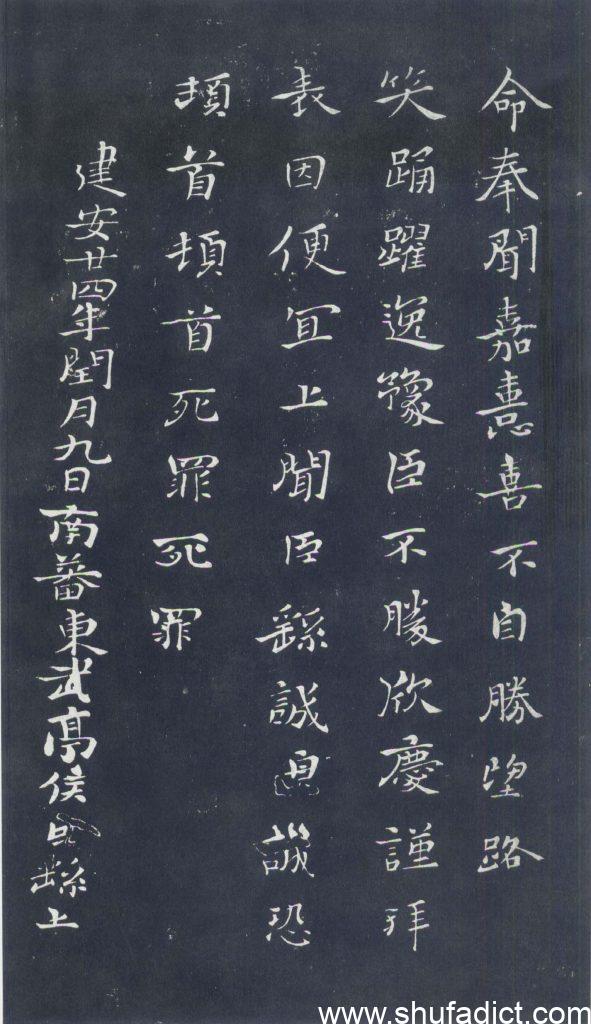 命奉聞嘉憙喜不自勝望路
笑踊躍逸豫臣不勝欣慶謹拜
表因便冝上聞臣繇誠皇誠恐
頓首頓首死罪死罪
建安廿四年閏月九日南蕃東武亭侯臣繇上
www.shufadict.com